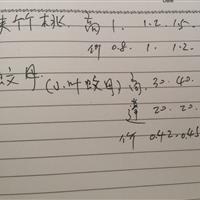 棕竹 高 1. 1.2. 1.5.
价 0.8. 1. 1.2.
蚊母 (小叶蚊母) 高. 30. 40.
蓬 20. 20.
价 0.42. 0.45